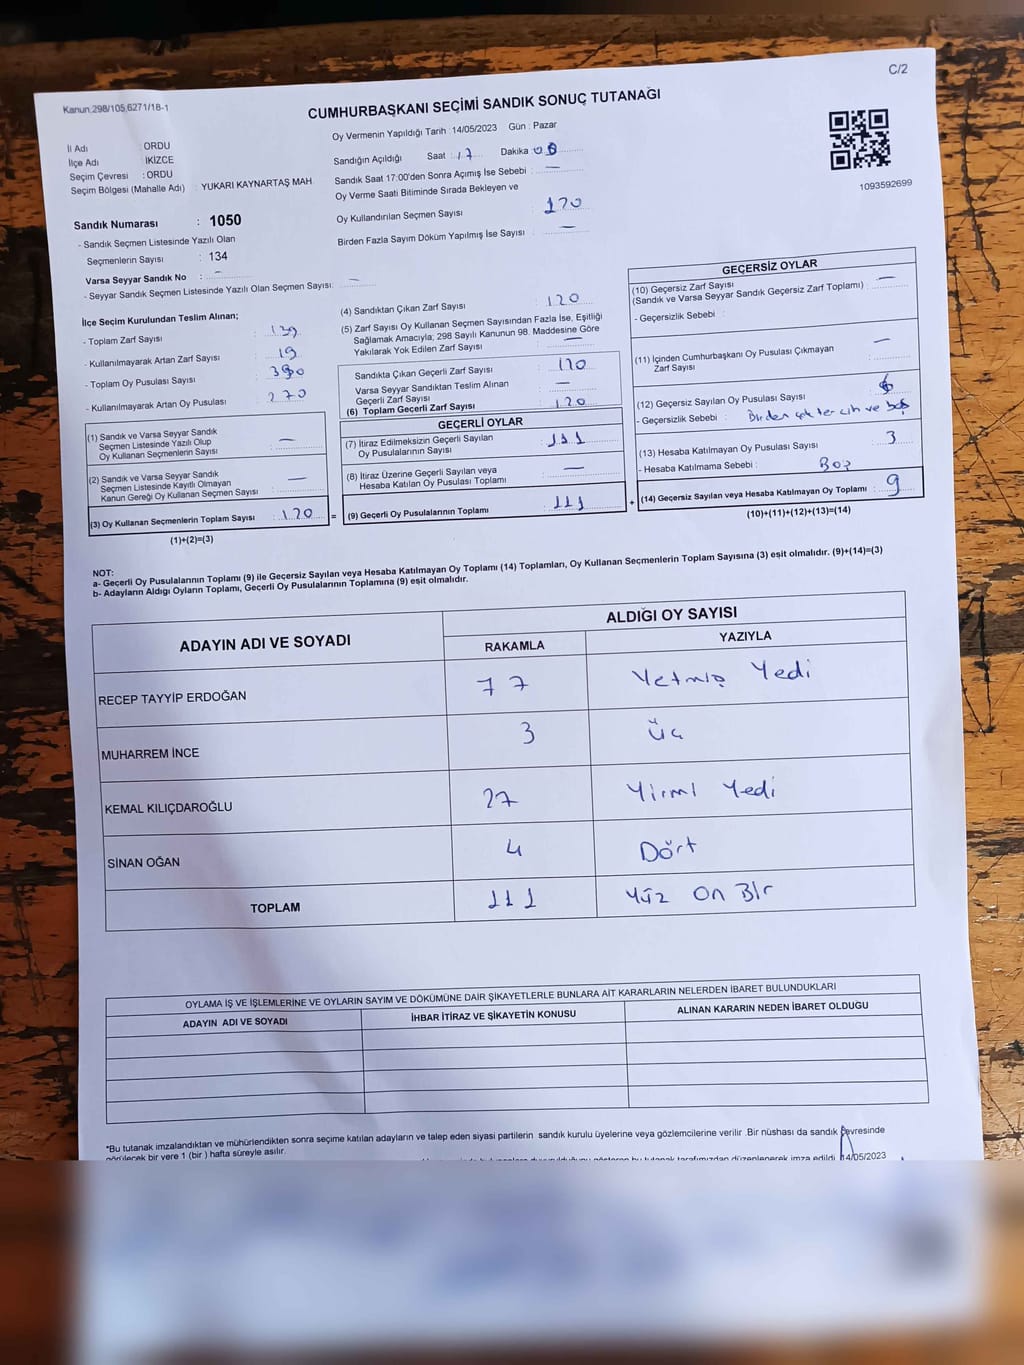 C/2
Kanun:298/105,6271/18-1
CUMHURBAŞKANI SEÇİMİ SANDIK SONUÇ TUTANAĞI
Oy Vermenin Yapıldığı Tarih : 14/05/2023 Gün : Pazar
İl Adı : ORDU
İlçe Adı : İKİZCE
Seçim Çevresi : ORDU
Seçim Bölgesi (Mahalle Adı) : YUKARI KAYNARTAŞ MAH
Sandık Numarası : 1050
- Sandık Seçmen Listesinde Yazılı Olan
Seçmenlerin Sayısı : 134
Varsa Seyyar Sandık No : –
- Seyyar Sandık Seçmen Listesinde Yazılı Olan Seçmen Sayısı: –
Sandığın Açıldığı Saat : 17 Dakika
Sandık Saat 17:00'den Sonra Açımış İse Sebebi : –
Oy Verme Saati Bitiminde Sırada Bekleyen ve
Oy Kullandırılan Seçmen Sayısı : 120
Birden Fazla Sayım Döküm Yapılmış İse Sayısı : –
1093592699
İlçe Seçim Kurulundan Teslim Alınan;
- Toplam Zarf Sayısı : 139
- Kullanılmayarak Artan Zarf Sayısı : 19
- Toplam Oy Pusulası Sayısı : 390
- Kullanılmayarak Artan Oy Pusulası : 270
(1) Sandık ve Varsa Seyyar Sandık
Seçmen Listesinde Yazılı Olup
Oy Kullanan Seçmenlerin Sayısı : –
(2) Sandık ve Varsa Seyyar Sandık
Seçmen Listesinde Kayıtlı Olmayan
Kanun Gereği Oy Kullanan Seçmen Sayısı : –
(3) Oy Kullanan Seçmenlerin Toplam Sayısı : 120 =
(1)+(2)=(3)
(4) Sandıktan Çıkan Zarf Sayısı : 120
(5) Zarf Sayısı Oy Kullanan Seçmen Sayısından Fazla İse, Eşitliği
Sağlamak Amacıyla; 298 Sayılı Kanunun 98. Maddesine Göre
Yakılarak Yok Edilen Zarf Sayısı : –
Sandıkta Çıkan Geçerli Zarf Sayısı : 120
Varsa Seyyar Sandıktan Teslim Alınan
Geçerli Zarf Sayısı : –
(6) Toplam Geçerli Zarf Sayısı : 120
GEÇERLİ OYLAR
(7) İtiraz Edilmeksizin Geçerli Sayılan
Oy Pusulalarının Sayısı : 111
(8) İtiraz Üzerine Geçerli Sayılan veya
Hesaba Katılan Oy Pusulası Toplamı : –
(9) Geçerli Oy Pusulalarının Toplamı : 111 +
GEÇERSİZ OYLAR
(10) Geçersiz Zarf Sayısı
(Sandık ve Varsa Seyyar Sandık Geçersiz Zarf Toplamı) : –
- Geçersizlik Sebebi :
(11) İçinden Cumhurbaşkanı Oy Pusulası Çıkmayan
Zarf Sayısı : –
(12) Geçersiz Sayılan Oy Pusulası Sayısı : 6
- Geçersizlik Sebebi : Birden çok tercih ve boş
(13) Hesaba Katılmayan Oy Pusulası Sayısı : 3
- Hesaba Katılmama Sebebi : Boş
(14) Geçersiz Sayılan veya Hesaba Katılmayan Oy Toplamı : 9
(10)+(11)+(12)+(13)=(14)
NOT:
a- Geçerli Oy Pusulalarının Toplamı (9) ile Geçersiz Sayılan veya Hesaba Katılmayan Oy Toplamı (14) Toplamları, Oy Kullanan Seçmenlerin Toplam Sayısına (3) eşit olmalıdır. (9)+(14)=(3)
b- Adayların Aldığı Oyların Toplamı, Geçerli Oy Pusulalarının Toplamına (9) eşit olmalıdır.
ADAYIN ADI VE SOYADI ALDIĞI OY SAYISI
RAKAMLA YAZIYLA
RECEP TAYYİP ERDOĞAN 77 Yetmiş Yedi
MUHARREM İNCE 3 Üç
KEMAL KILIÇDAROĞLU 27 Yirmi Yedi
SİNAN OĞAN 4 Dört
TOPLAM 111 Yüz On Bir
OYLAMA İŞ VE İŞLEMLERİNE VE OYLARIN SAYIM VE DÖKÜMÜNE DAİR ŞİKAYETLERLE BUNLARA AİT KARARLARIN NELERDEN İBARET BULUNDUKLARI
ADAYIN ADI VE SOYADI İHBAR İTİRAZ VE ŞİKAYETİN KONUSU ALINAN KARARIN NEDEN İBARET OLDUĞU
*Bu tutanak imzalandıktan ve mühürlendikten sonra seçime katılan adayların ve talep eden siyasi partilerin sandık kurulu üyelerine veya gözlemcilerine verilir .Bir nüshası da sandık çevresinde
görülecek bir yere 1 (bir ) hafta süreyle asılır.
bu tutanak tarafımızdan düzenlenerek imza edildi. 14/05/2023